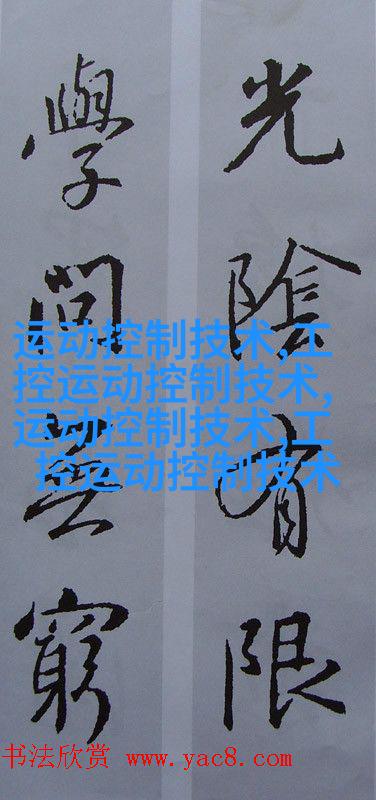 光陰有限
學問無窮
运动控制技术,工
控运动控制技术,
运动控制技术,工
控运动控制技术
书法欣赏 www.yac8.com